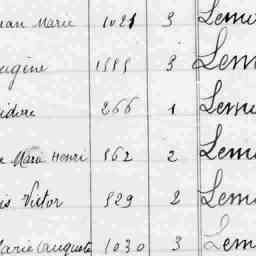 ean Marie 1021 3 Lem
eugène 1595 3 Lem
sidore 266 1 Lem
e Marie Henri 562 2 Lem
is Victor 529 2 Lem
Marie Auguste 1030 3 Lem